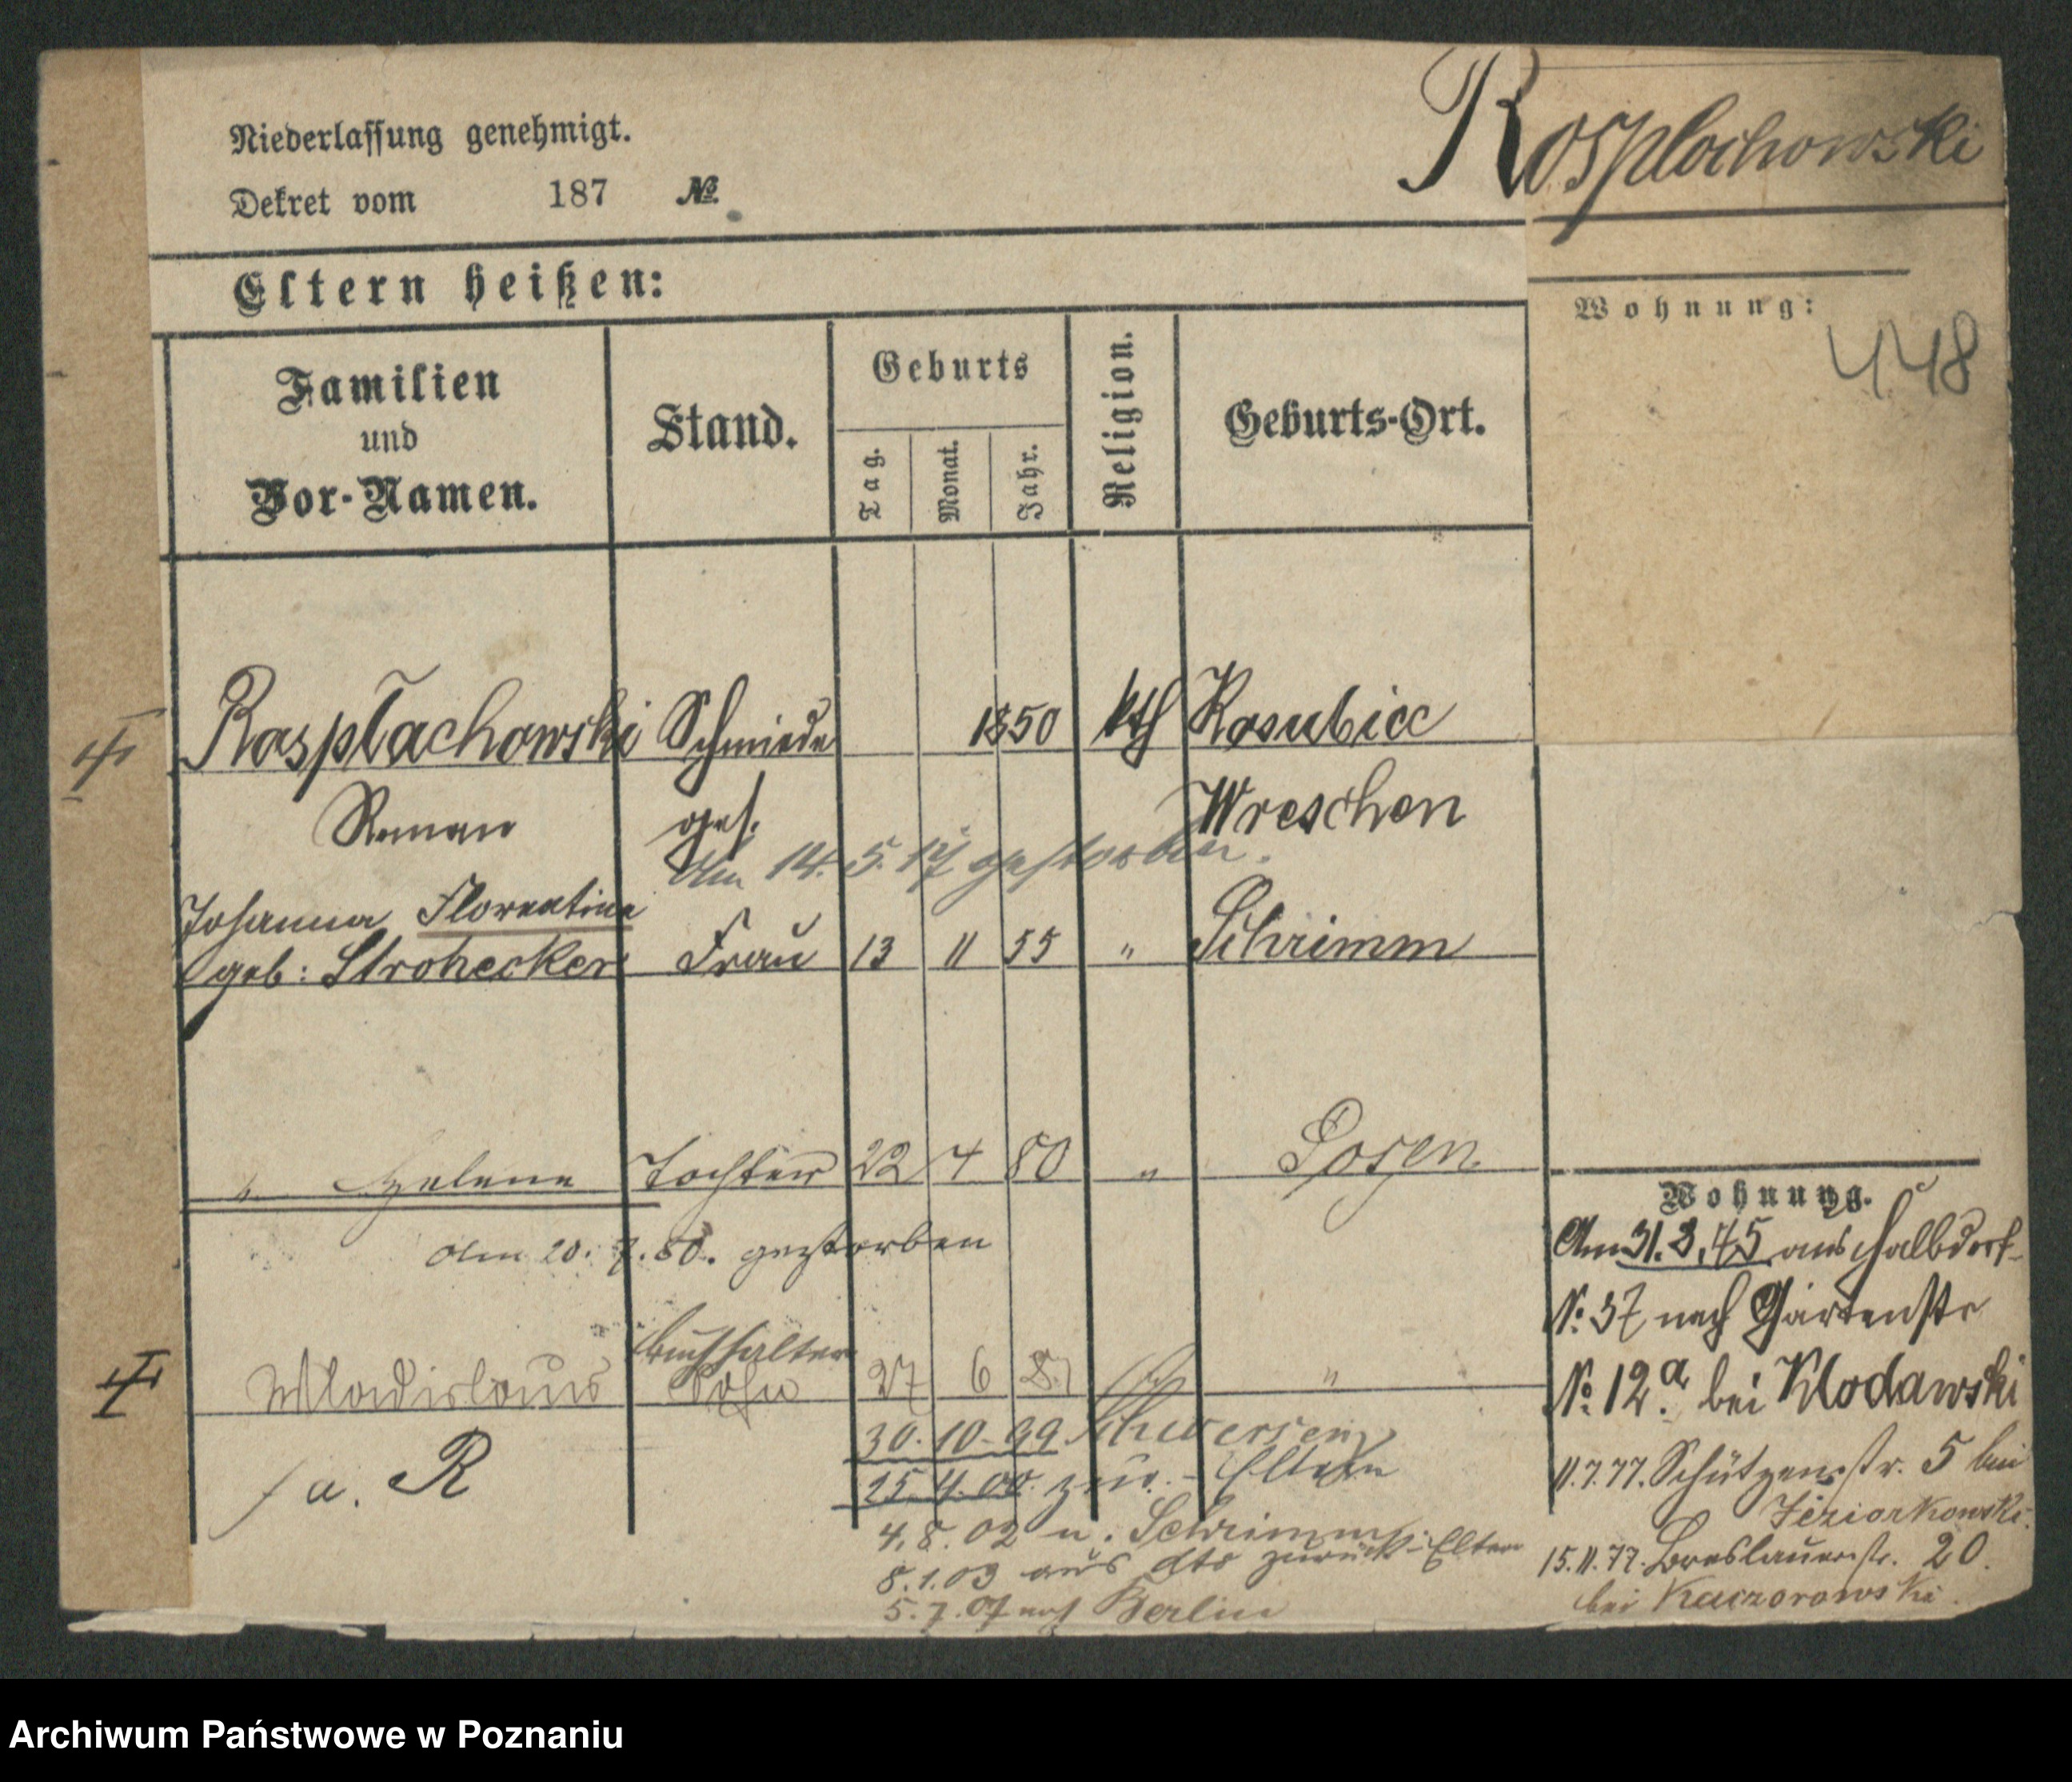 Rosplochowski
Niederlassung genehmigt.
Dekret vom 187 №
Eltern heißen:
Wohnung:
448
Familien
und
Vor-Namen.
Stand.
Geburts
Tag.
Monat.
Jahr.
Religion.
Geburts-Ort.
Rasplachowski Schmiede 1850 kth
Roman ges. Wreschen
am 14. 5. 17 gestorben.
Johanna Florentine
geb: Strohecker Frau 13 11 55 " Schrimm
" Helene Tochter 22 4 80 " Posen
am 20. 7. 80. gestorben
Buchhalter
Wladislaus Sohn 27 6 "
30. 10. 99 Schwersenz
25. 4. 00. zur. - Eltern
/ a. R
4. 8. 02 n. Schrimm
8. 1. 03 aus dto zurück - Eltern
5. 7. 07 nach Berlin
Wohnung.
Am 31. 3. 75 aus Halbdorf-
№ 37 nach Gartenstr
№ 12a. bei Klodawski
11. 7. 77. Schützenstr. 5 bei
Jeziorkowski.
15. 11. 77. Breslauerstr. 20.
bei Kaczorowski.
Archiwum Państwowe w Poznaniu